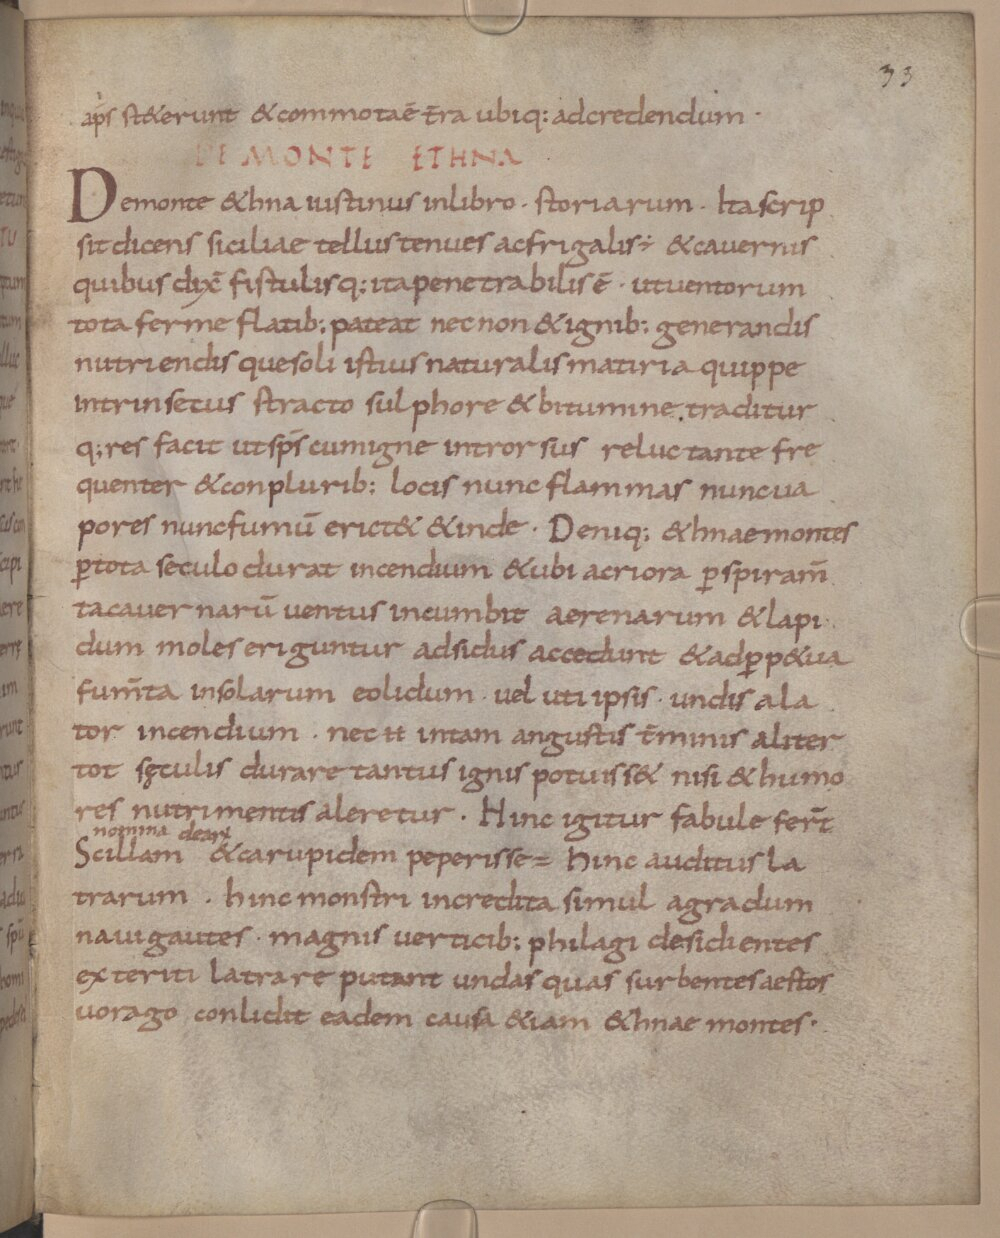 33
aṕs st&erunt &commotaē t̄ra ubiq: adcredendum ·
DE MONTE ETHNA
Demonte &hna iustinus inlibro · storiarum · Ita scrip
sit dicens siciliae tellus tenues acfrigalis÷ &cavernis
quibus dix̄ fistulisq: ita penetrabilis ē · utventorum
tota ferme flatib: pateat necnon &ignib: generandis
nutriendis quesoli istius naturalis matiria quippe
intrinsecus stracto sulphore &bitumine traditur
q;res facit utsp̄s cumigne introrsus reluctante fre
quenter &conplurib: locis nunc flammas nuncua
pores nuncfumū erict& &inde · Deniq; &hnaemontes
ꝑtota seculo durat incendium &ubi acriora ꝑspiram̄
tacauernarū uentus incumbit aerenarum &lapi
dum moles eriguntur adsidus accedunt &adꝑp&ua
fum̄ta insolarum eolidum · uel uti ipsis · undis ala
tor incendium · necit intam angustis t̄minis aliter
tot sęculis durare tantus ignis potuiss& nisi &humo
res nutrimentis aleretur · Hinc igitur fabule fer̄t
nomina dearꝝ
Scillam &carupidem peperisse= hinc auditus la
trarum · hinc monstri incredita simul agradum
nauigautes · magnis uerticib: philagi desidientes
exteriti latrare putant undas quas surbentesaestos
uorago conlidit eadem causa &iam &hnae montes·